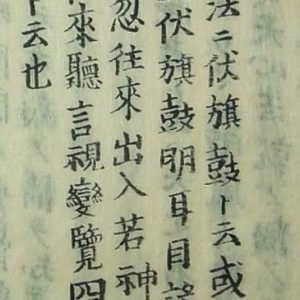 法ニ伏旗鼓ト云或
伏旗鼓明耳目
忽往來出入若神
來聽言視變覽四
ト云也